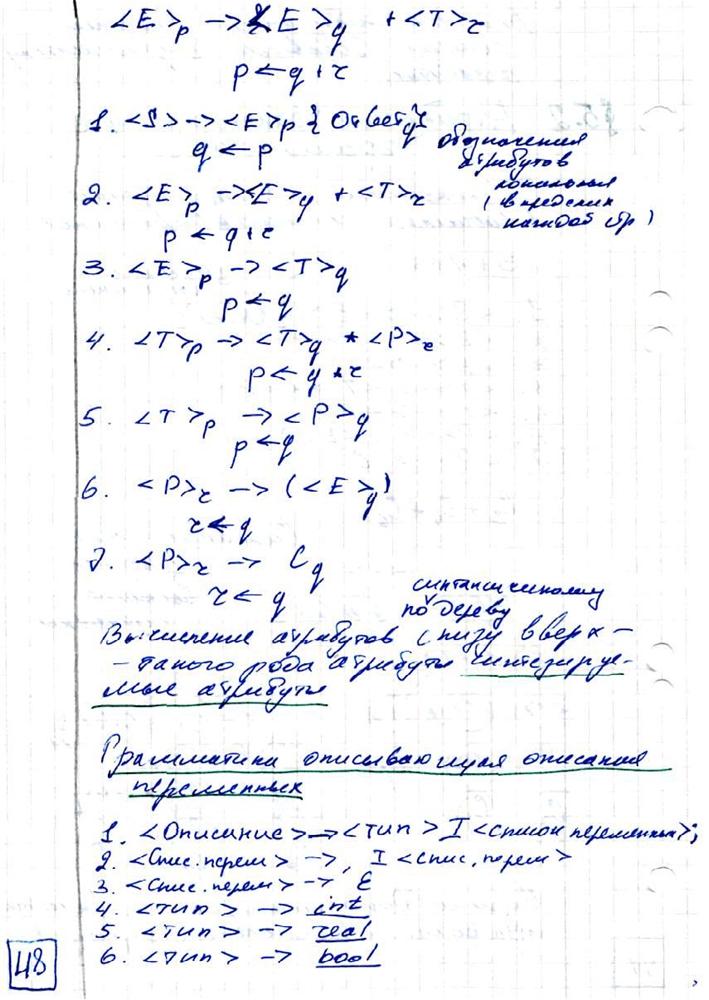 <E>p -> <E>q + <T>r
p ← q + r
1. <S> -> <E>p { Ответq }
q ← p
обозначения
атрибутов
локальная
(в пределах
каждой стр)
2. <E>p -> <E>q + <T>r
p ← q + r
3. <E>p -> <T>q
p ← q
4. <T>p -> <T>q * <P>r
p ← q * r
5. <T>p -> <P>q
p ← q
6. <P>r -> (<E>q)
r ← q
7. <P>r -> Cq
r ← q
синтаксическому
по дереву
Вычисление атрибутов снизу вверх -
- такого рода атрибуты синтезируе-
мые атрибуты
Грамматика описывающая описания
переменных
1. <Описание> -> <тип> I <список переменных>;
2. <Спис. перем> -> , I <спис. перем>
3. <спис. перем> -> ε
4. <тип> -> int
5. <тип> -> real
6. <тип> -> bool
48